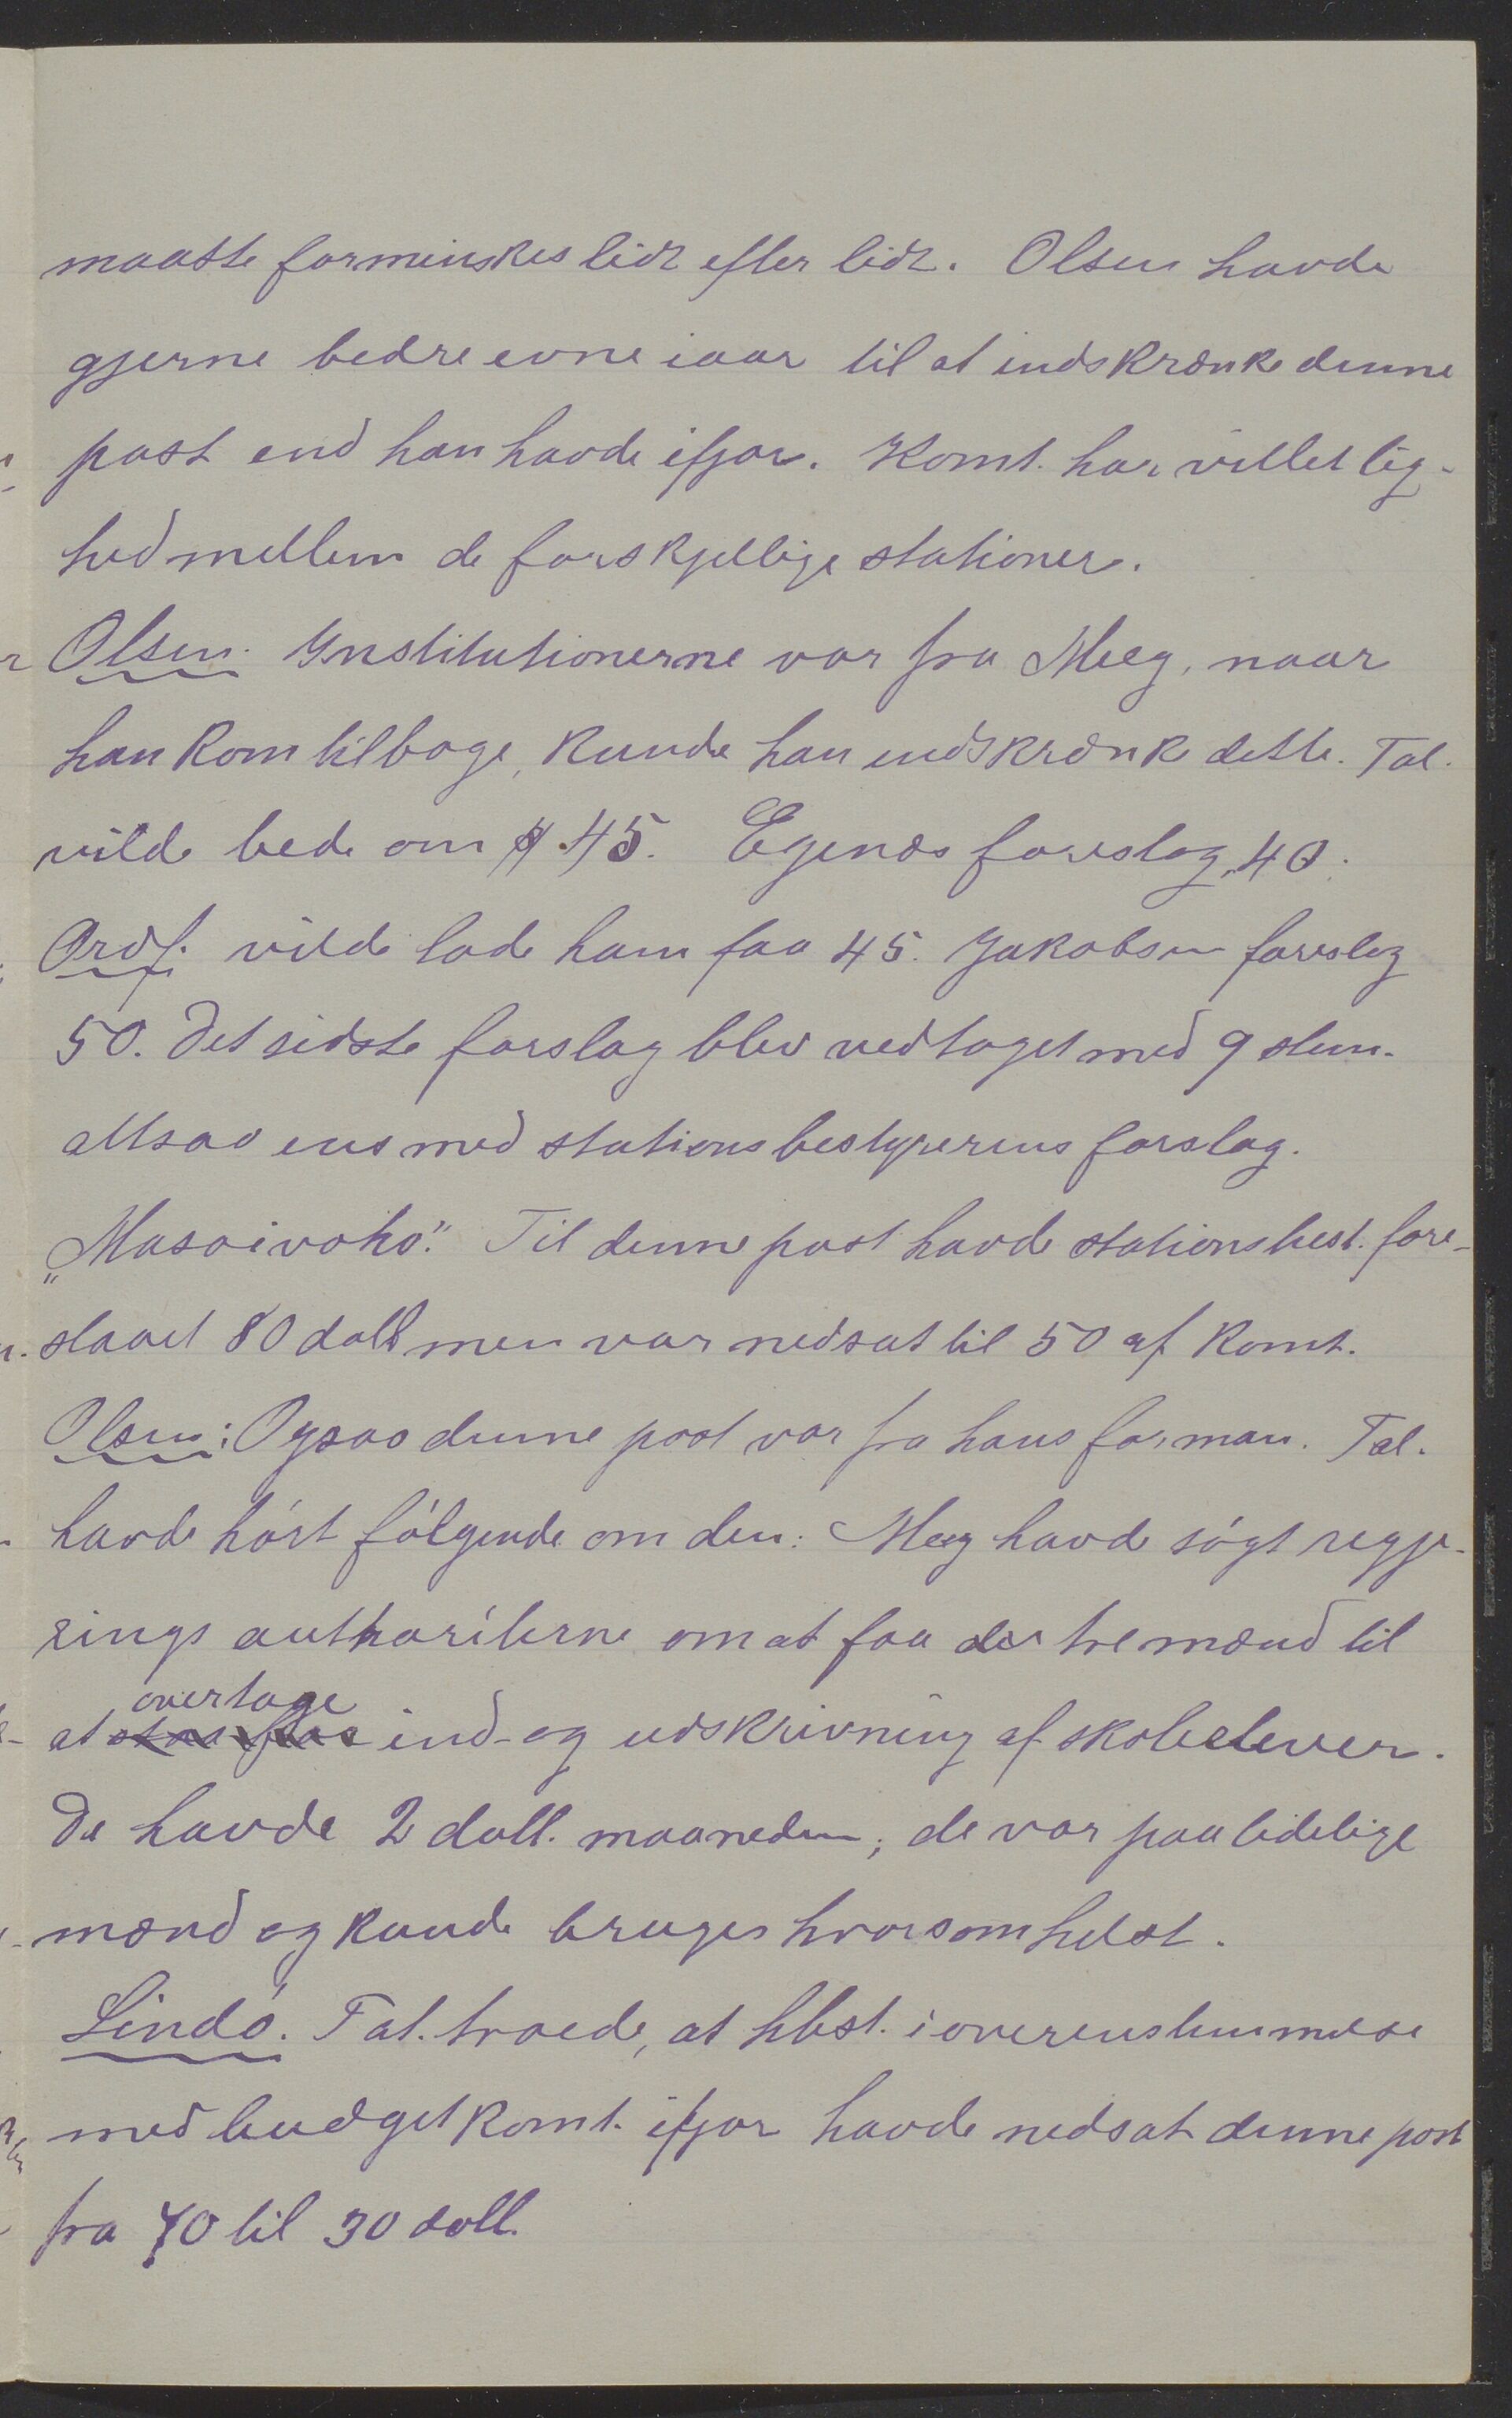 maatte forminskes lidt efter lidt. Olsen havde
gjerne bedre evne iaar til at indskrænke denne
post end han havde ifjor. Komt. har villet lig-
hed mellem de forskjellige stationer.
Olsen. Institutionerne var fra Meeg, naar
han kom tilbage, kunde han indskrænke dette. Tal.
vilde bede om $ 45. Egenæs foreslog 40.
Ordf. vilde lade ham faa 45. Jakobsen foreslog
50. Det sidste forslag blev vedtaget med 9 stem.
altsaa ens med stationsbestyrerens forslag.
„Masoivoho". Til denne post havde stationsbest. fore-
slaaet 80 doll men var nedsat til 50 af Komt.
Olsen: Ogsaa denne post var fra hans forman. Tal.
havde hórt fólgende om den: Meeg havde sógt regje-
rings authoriterne om at faa der tre mænd til
at overtage ind- og udskrivning af skoleelever.
De havde 2 doll. maaneden; de var paalidelige
mænd og kunde bruges hvorsomhelst.
Lindó. Tal. troede, at hbst. i overensstemmelse
med budgetkomt. ifjor havde nedsat denne post
fra 70 til 30 doll.